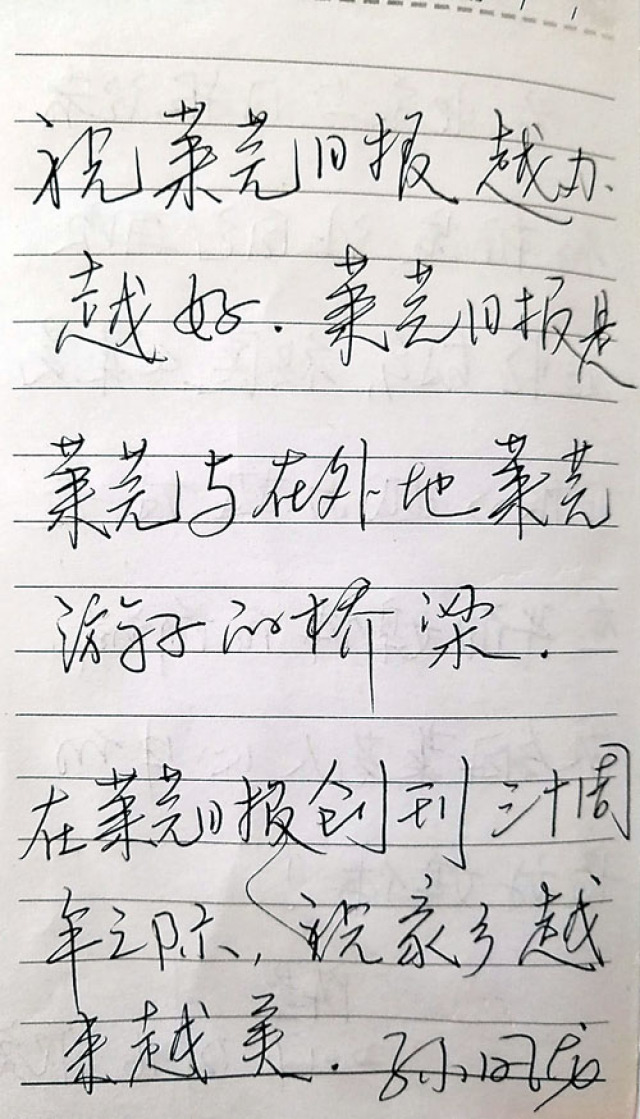 祝莱芜日报越办
越好.莱芜日报是
莱芜与在外地莱芜
游子的桥梁.
在莱芜日报创刊三十周
年之际,祝家乡越
来越美.孙